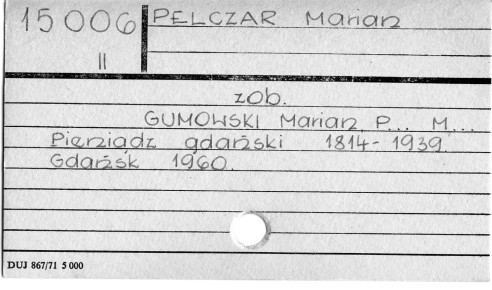 15006 PELCZAR Marian
II
zob.
GUMOWSKI Marian, P... M...
Pieniądz gdański 1814-1939.
Gdańsk 1960.
DUJ 867/71 5 000